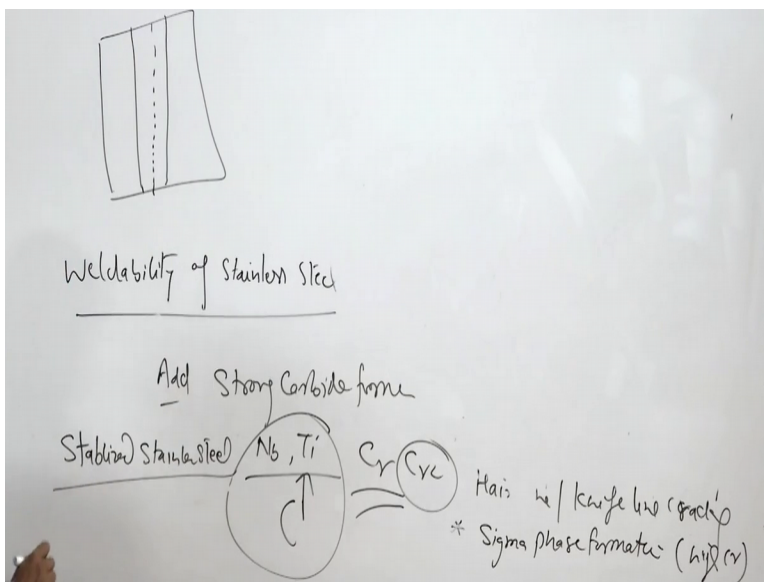 Weldability of Stainless Steel
Add Strong Carbide former
Stablized Stainless Steel Nb, Ti Cr CrC
C
knife line cracking
* Sigma phase formation (high Cr)